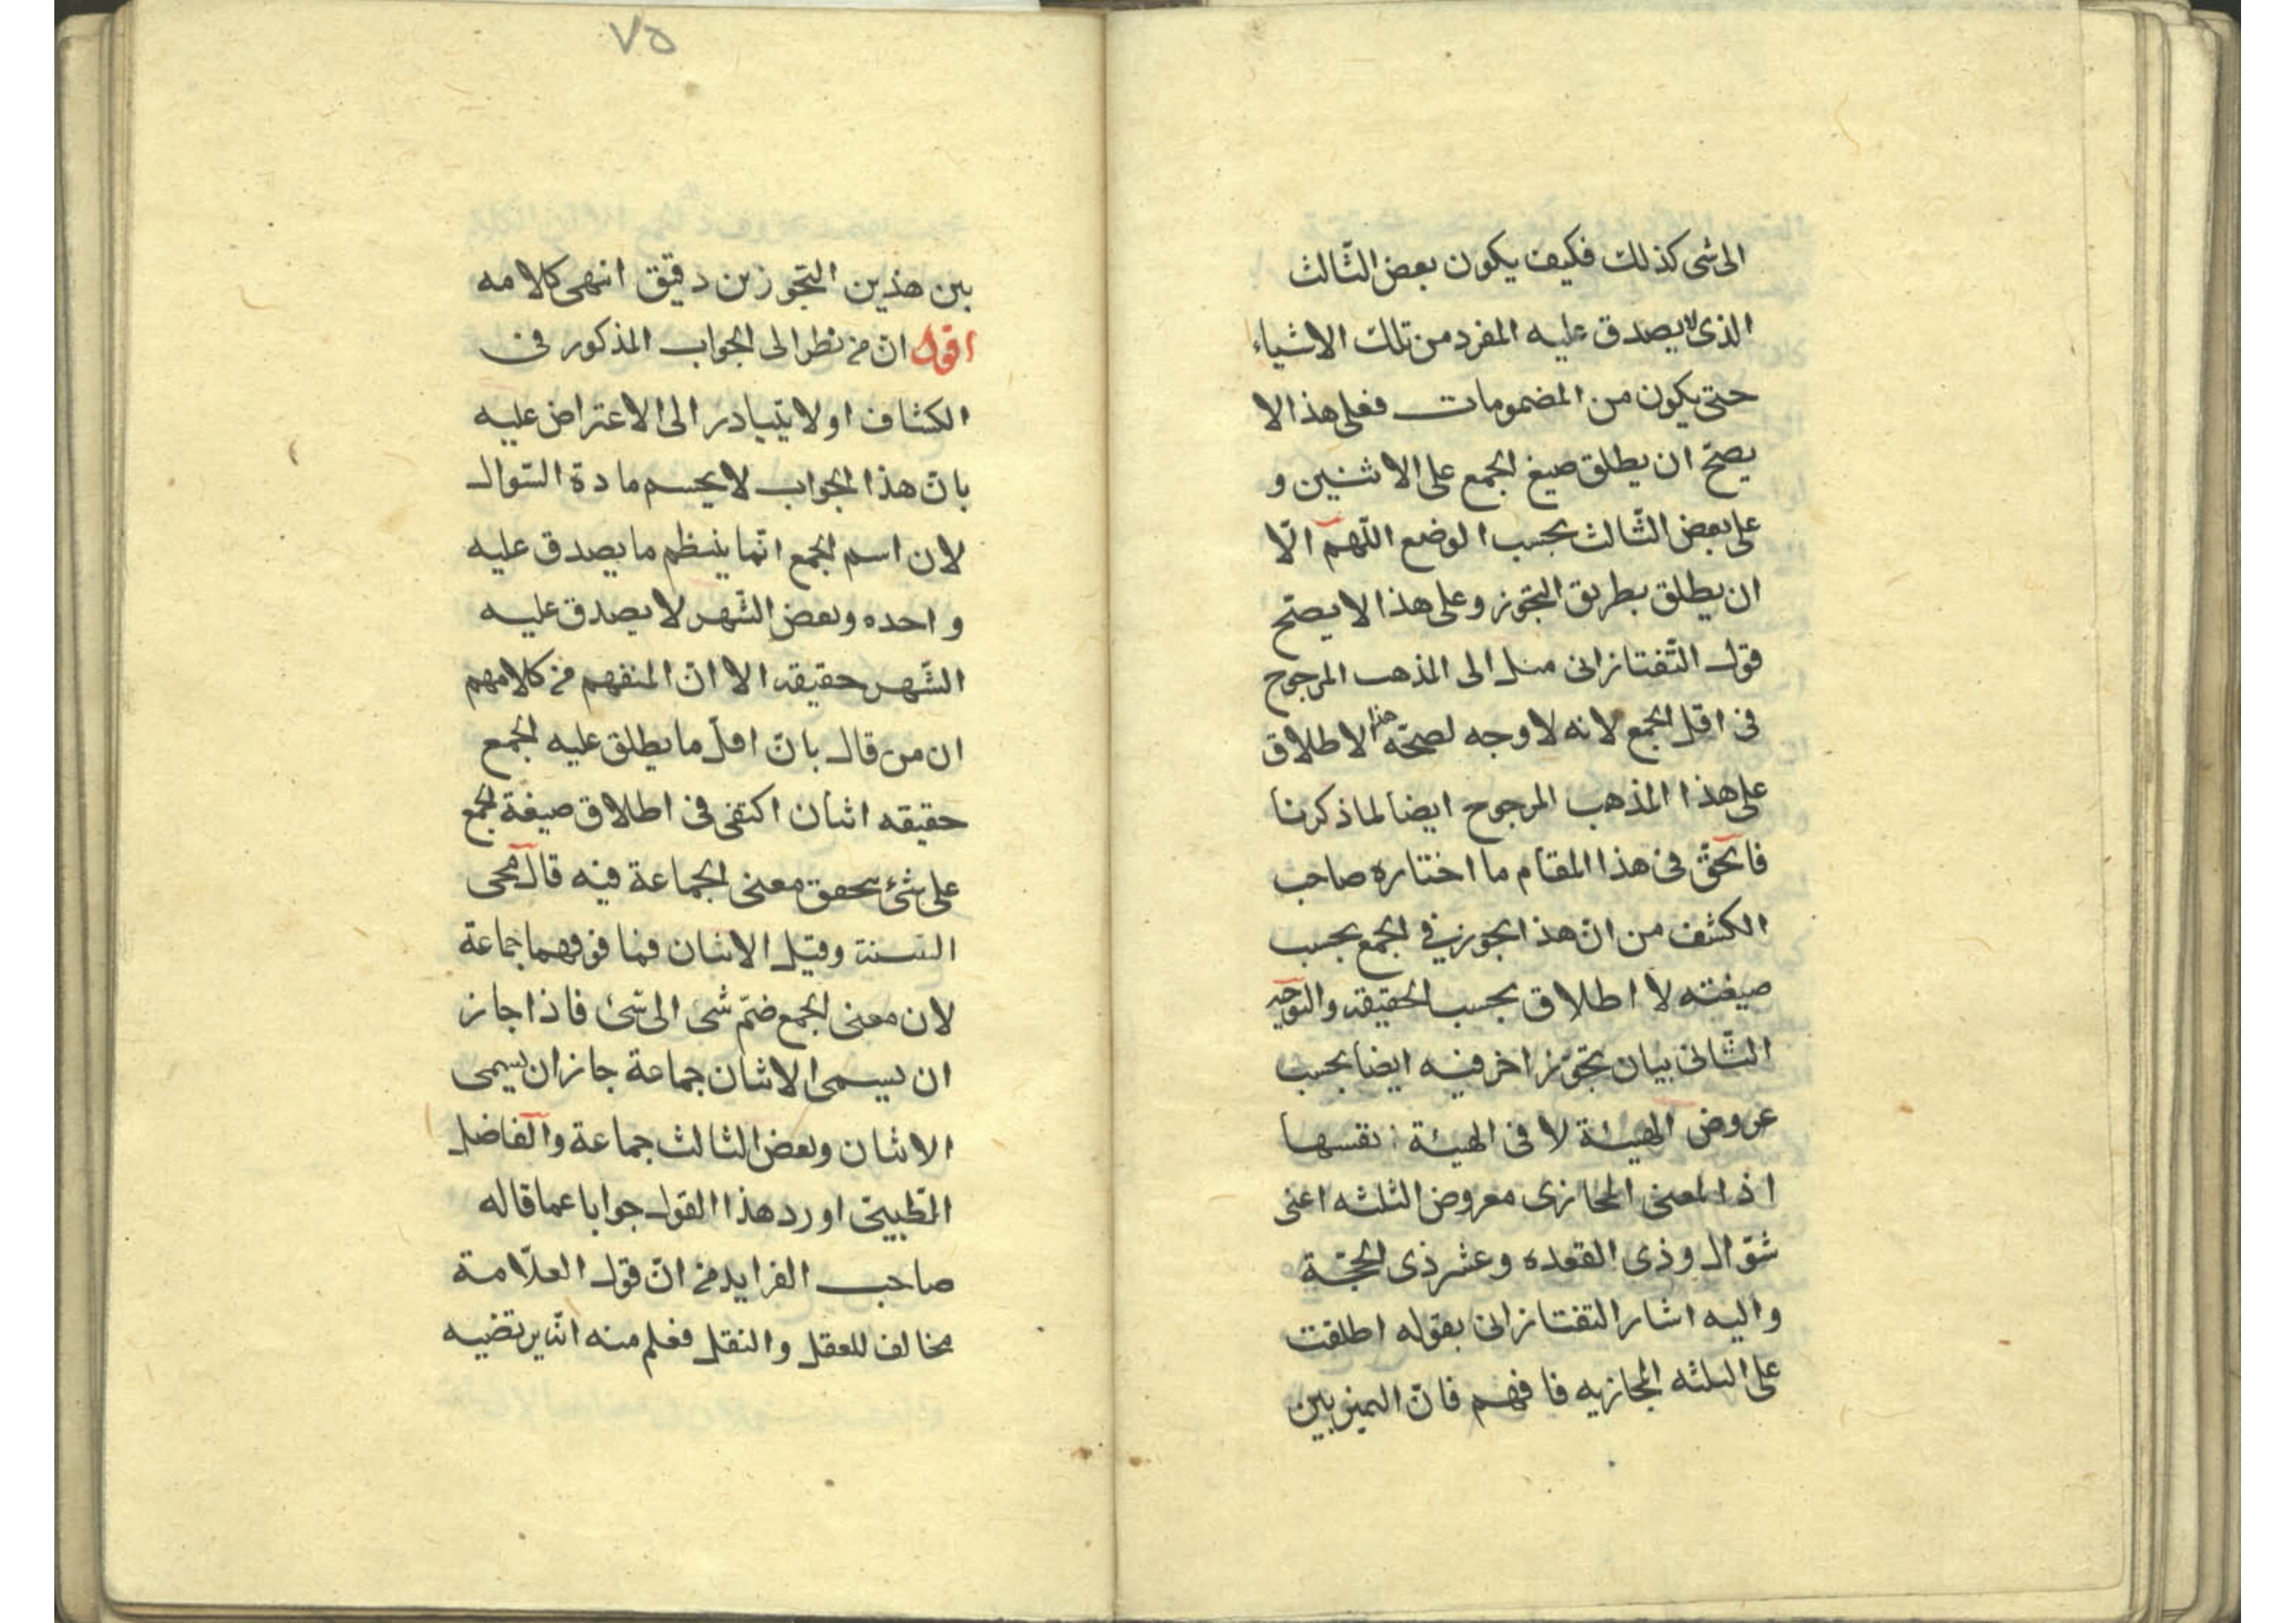 الى شى كذلك فكيف يكون بعض الثّالث
الذى لا يصدق عليه المفرد من تلك الاشياء
حتى يكون من المضمومات فعلى هذا لا
يصحّ ان يطلق صيغ الجمع على الاثنين و
على بعض الثّالث بحسب الوضع اللّهمّ الّا
ان يطلق بطريق التجوّز وعلى هذا لا يصحّ
قول التّفتازانى ميل الى المذهب المرجوح
فى اقل الجمع لانه لا وجه لصحّة هذا الاطلاق
على هذا المذهب المرجوح ايضا لما ذكرنا
فالحقّ فى هذا المقام ما اختاره صاحب
الكشف من انّ هذا تجوز فى الجمع بحسب
صيغته لا اطلاق بحسب الحقيقة والتوجيه
الثّانى بيان تجوّز اخر فيه ايضا بحسب
عروض الهيئة لا فى الهيئة نفسها
اذ المعنى المجازى معروض الثلثه اعنى
شوّال وذى القعده وعشر ذى الحجّة
واليه اشار التفتازانى بقوله اطلقت
على الثلثه المجازيه فافهم فانّ التميز بين
٧٥
بين هذين التجوزين دقيق انتهى كلامه
اقول انّ من نظر الى الجواب المذكور فى
الكشاف اولا يتبادر الى الاعتراض عليه
بانّ هذا الجواب لا يحسم مادة السّوال
لان اسم الجمع انّما ينتظم ما يصدق عليه
واحده وبعض الشّهر لا يصدق عليه
الشّهر حقيقة الا انّ المنفهم من كلامهم
ان من قال بانّ اقلّ ما يطلق عليه الجمع
حقيقه اثنان اكتفى فى اطلاق صيغة الجمع
على شئ بتحقق معنى الجماعة فيه قال محى
السنة وقيل الاثنان فما فوقهما جماعة
لان معنى الجمع ضمّ شئ الى شئ فاذا جاز
ان يسمى الاثنان جماعة جاز ان يسمى
الاثنان وبعض الثالث جماعة والفاضل
الطّيبى اورد هذا القول جوابا عما قاله
صاحب الفرايد من انّ قول العلّامة
مخالف للعقل والنقل فعلم منه انّه يرتضيه